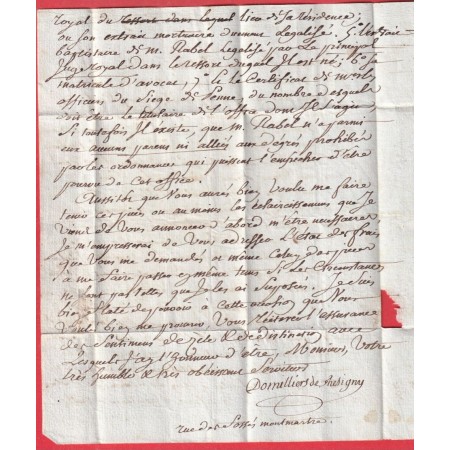 royal du ressort dans lequel lieu de sa résidence;
ou son extrait mortuaire duement Legalisé. 5.° L'extrait
baptistaire de m. Rabel Legalisé par Le principal
Juge royal dans le ressort duquel il est né; 6.° sa
matricule d'avocat; 7.° le Certificat de M.rs les
officiers du Siege de du nombre desquels
doit être le titulaire de l'office dont il s'agit
Si toutefois Il existe, que m. Rabel n'a parmi
eux aucuns parens ni alliés aux degrés prohibés
par les ordonnances qui puissent l'empecher d'être
pourvu de cet office.
Aussitôt que Vous aurés bien Voulu me faire
tenir ces pièces ou au moins les éclaircissemens que Je
Viens de Vous annoncer d'abord m'être necessaires
Je m'empresserai de Vous adresser L'Etat des frais
que Vous me demandés et même Celui des pieces
à me faire passer en même tems Si Les Circonstances
ne sont pas telles que Je les ai Suposées. Je suis
bien flaté de pouvoir à cette occasion que Vous
Voulés bien me procurer, Vous Réiterer L'assurance
des Sentimens de zele & de distinction avec
Lesquels J'ay l'honneur d'être, Monsieur, Votre
très humble & très obéissant Serviteur
Domilliers de Thesigny
rue des fossés montmartre.